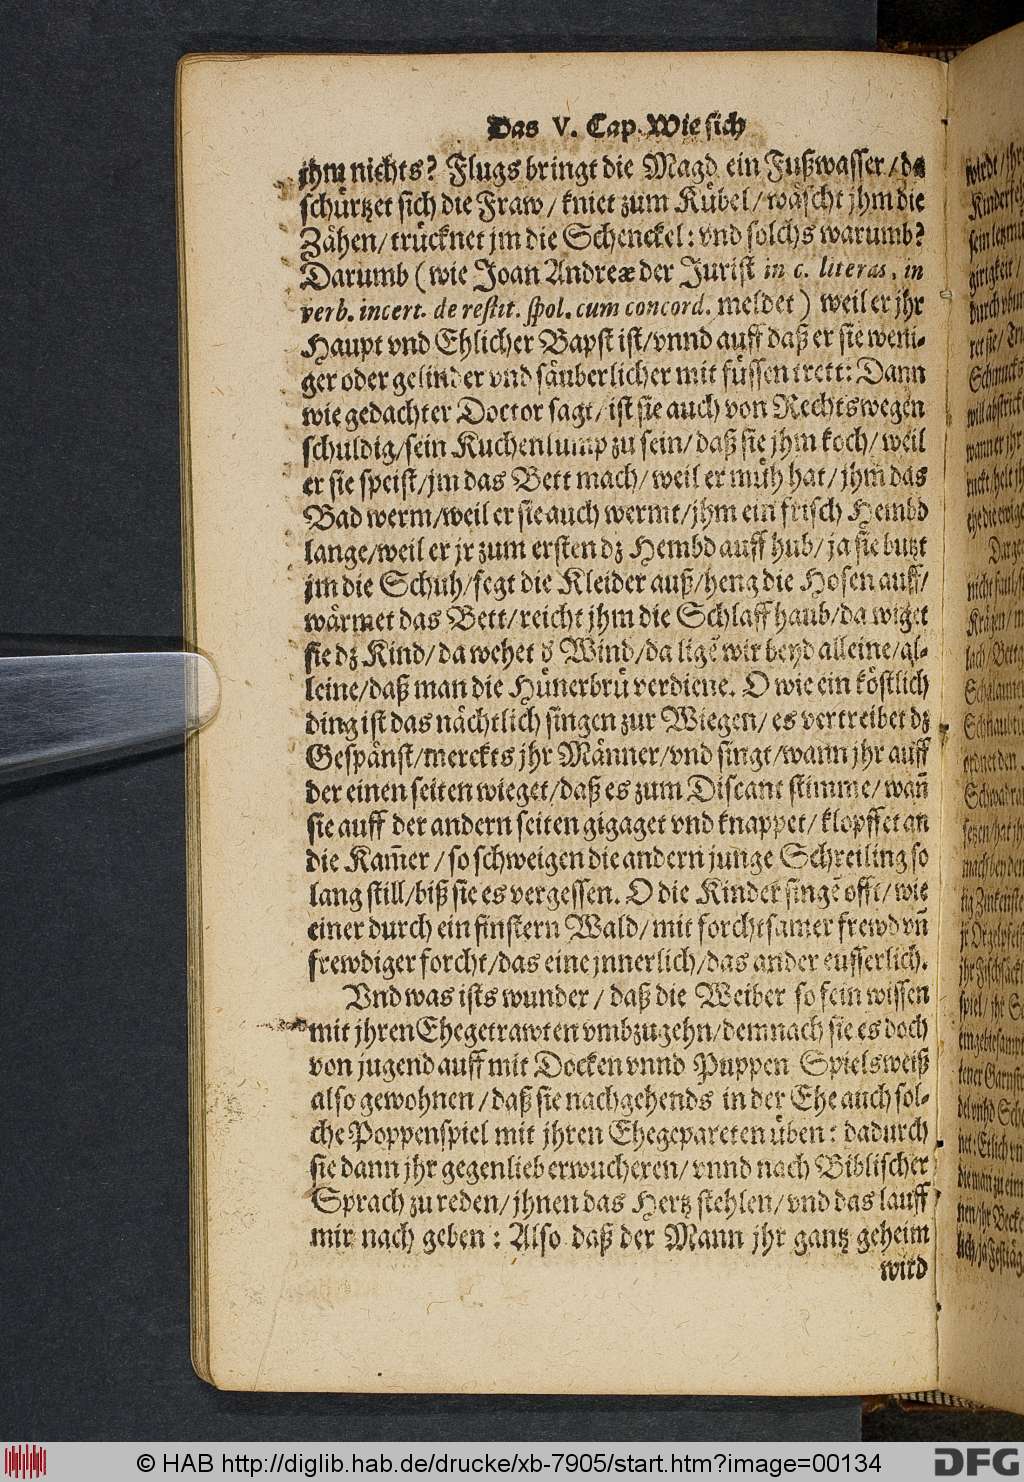 Das V. Cap. Wie sich
jhm nichts? Flugs bringt die Magd ein Fußwasser/da
schürtzet sich die Fraw/ kniet zum Kübel/ wäscht jhm die
Zähen/ trücknet jm die Schenckel: vnd solchs warumb?
Darumb (wie Joan Andreæ der Jurist in c. literas, in
verb. incert. de restit. spol. cum concord. meldet) weil er jhr
Haupt vnd Ehlicher Bapst ist/vnnd auff daß er sie weni-
ger oder gelinder vnd säuberlicher mit füssen trett: Dann
wie gedachter Doctor sagt/ ist sie auch von Rechts wegen
schuldig/sein Kuchenlump zu sein/ daß sie jhm koch/ weil
er sie speist/jm das Bett mach/ weil er müh hat/ jhm das
Bad werm/weil er sie auch wermt/jhm ein frisch Hembd
lange/weil er jr zum ersten dz Hembd auff hub/ ja sie butzt
jm die Schuh/fegt die Kleider auß/heng die Hosen auff/
wärmet das Bett/reicht jhm die Schlaffhaub/da wiget
sie dz Kind/da wehet d̕ Wind/da ligē wir beyd alleine/al-
leine/daß man die Hünerbrü verdiene. O wie ein köstlich
ding ist das nächtlich singen zur Wiegen/ es vertreibet dz
Gespänst/merckts jhr Männer/vnd singt/wann jhr auff
der einen seiten wieget/daß es zum Discant stimme/ wañ
sie auff der andern seiten gigaget vnd knappet/ klopffet an
die Kam̄er/so schweigen die andern junge Schreiling so
lang still/biß sie es vergessen. O die Kinder singē offt/ wie
einer durch ein finstern Wald/ mit forchtsamer frewd vñ
frewdiger forcht/das eine jnnerlich/das ander eusserlich.
Vnd was ists wunder/ daß die Weiber so fein wissen
mit jhren Ehegetrawten vmbzugehn/demnach sie es doch
von jugend auff mit Docken vnnd Puppen Spielsweiß
also gewohnen/daß sie nachgehends in der Ehe auch sol-
che Poppenspiel mit jhren Ehegepareten üben: dadurch
sie dann jhr gegenlieb erwucheren/ vnnd nach Biblischer
Sprach zu reden/jhnen das Hertz stehlen/ vnd das lauff
mir nach geben: Also daß der Mann jhr gantz geheim
wird
© HAB http://diglib.hab.de/drucke/xb-7905/start.htm?image=00134
DFG